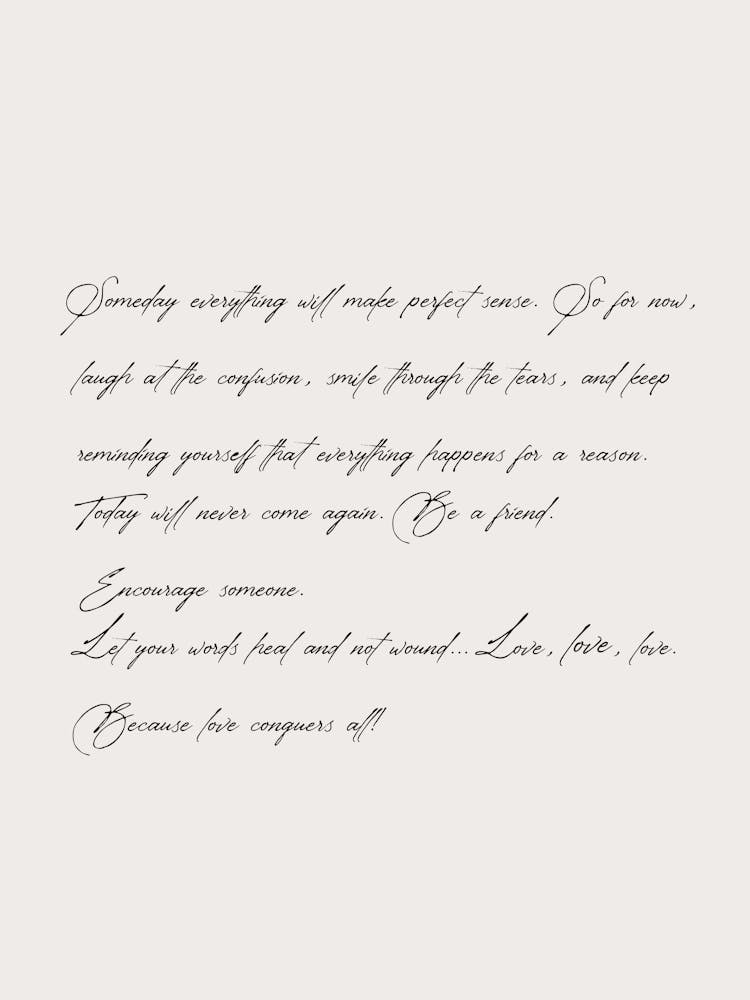 Someday everything will make perfect sense. So for now,
laugh at the confusion, smile through the tears, and keep
reminding yourself that everything happens for a reason.
Today will never come again. Be a friend.
Encourage someone.
Let your words heal and not wound... Love, love, love.
Because love conquers all!